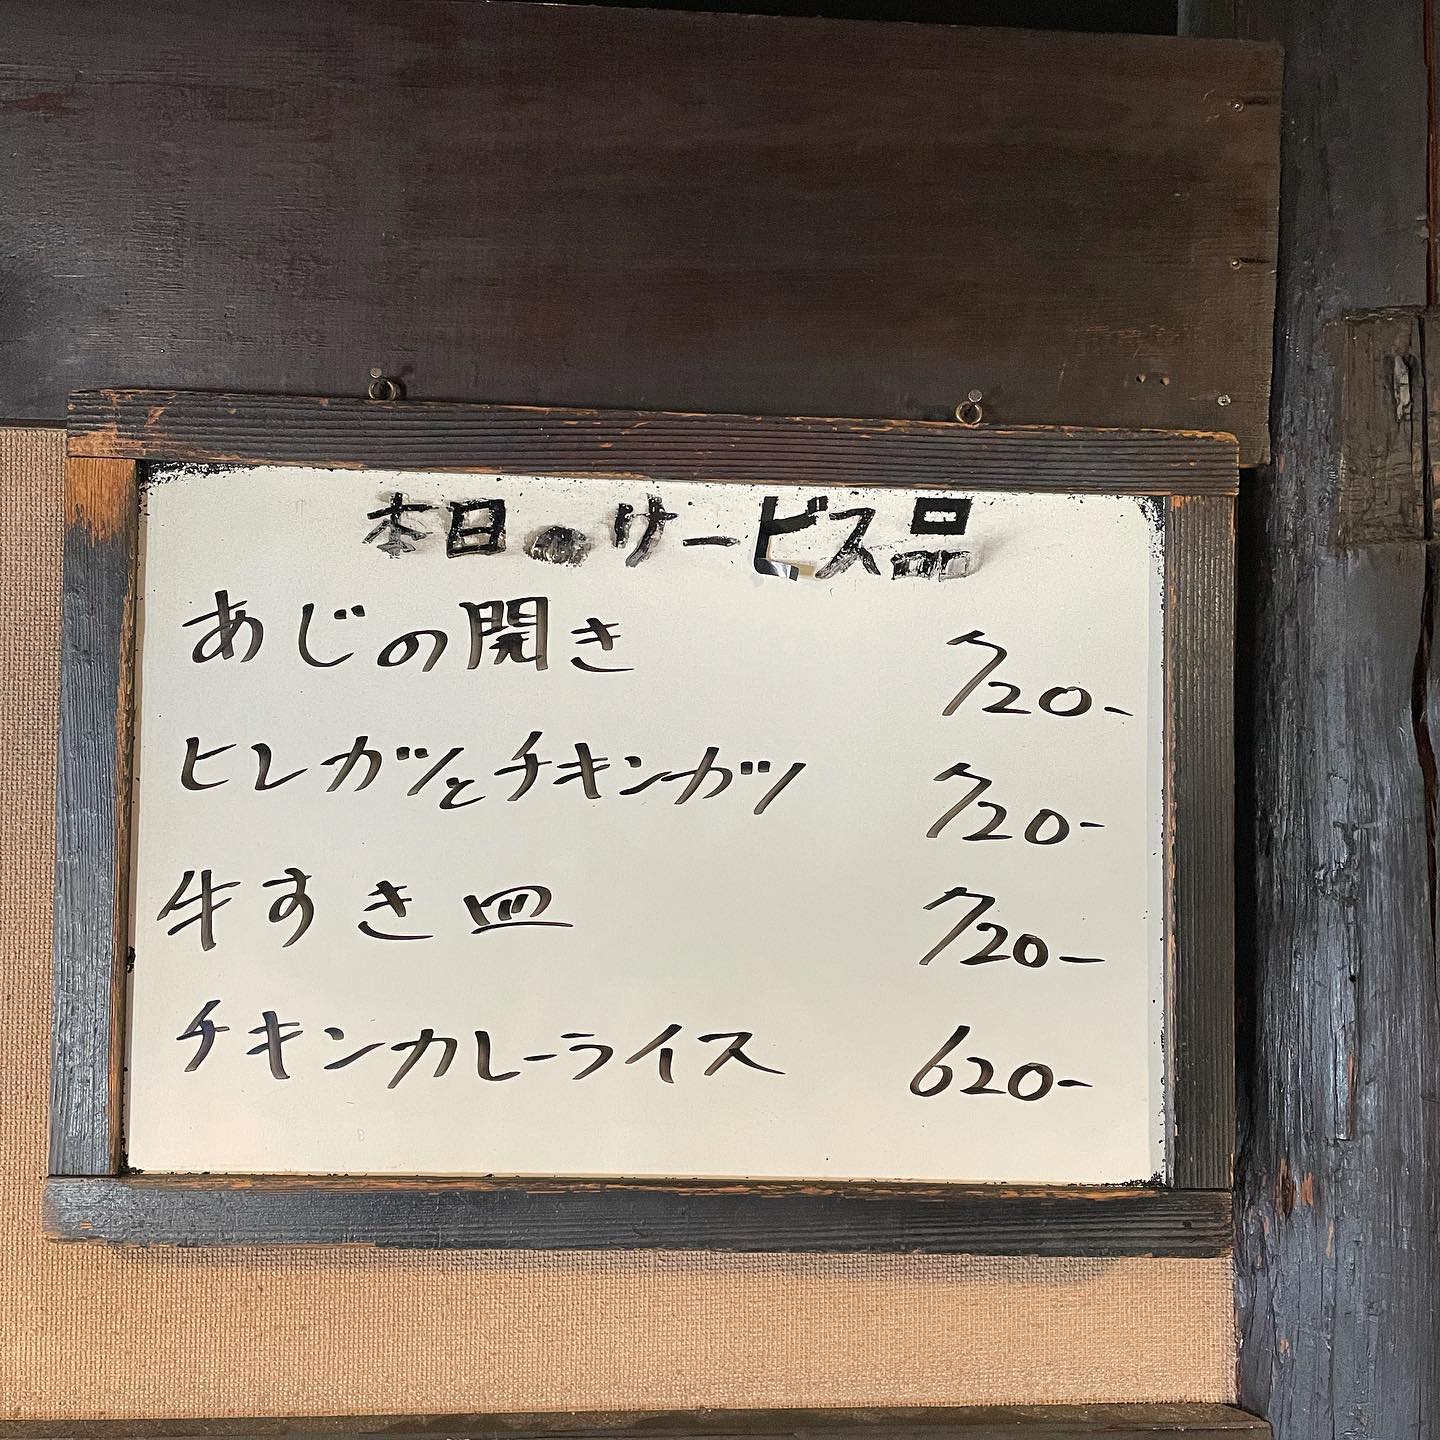 本日のサービス品
あじの開き 720-
ヒレカツとチキンカツ 720-
牛すき皿 720-
チキンカレーライス 620-